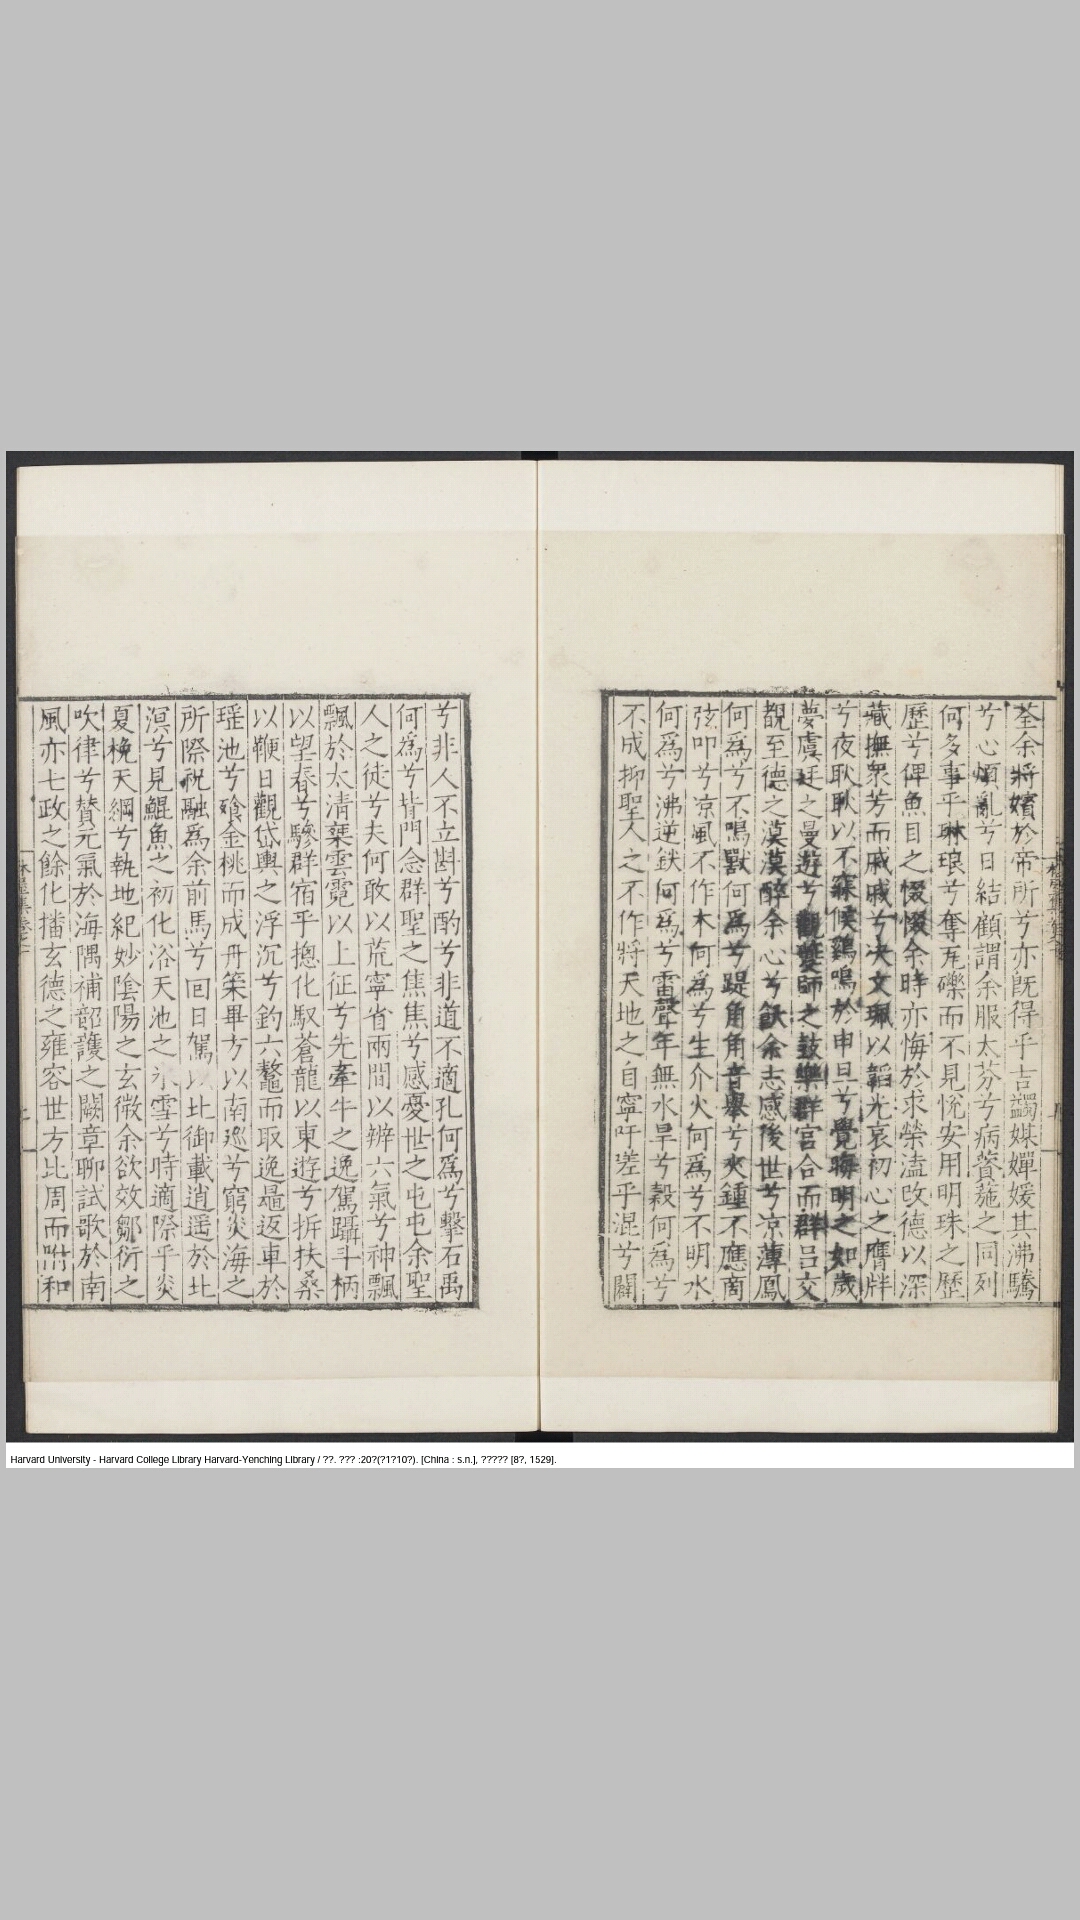 荃余將嬪於帝所兮亦既得乎吉蠲媒嬋媛其沸騰
兮心煩亂兮日結顧謂余服太芬兮病薋葹之同列
何多事乎琳琅兮奪瓦礫而不見恱安用明珠之歷
歷兮俾魚目之惙惙余時亦悔於求榮溘改德以深
藏撫衆芳而戚戚兮决文珮以韜光哀初心之膺牂
兮夜耿耿以不寐候鷄鳴於申旦兮覺晦明之如歲
夢虞廷之曼遊兮觀夔師之鼓樂群宫合而群吕交
覩至德之漠漠醉余心兮飫余志感後世兮凉薄鳳
何爲兮不鳴獸何爲兮踶角角音舉兮夾鍾不應啇
弦叩兮凉風不作木何爲兮生介火何爲兮不明水
何爲兮沸逆鈇何爲兮雷聲年無水旱兮穀何爲兮
不成抑聖人之不作將天地之自寧吁嗟乎混兮闢
兮非人不立斟兮酌兮非道不適孔何爲兮擊石禹
何爲兮揹門念群聖之焦焦兮感憂世之屯屯余聖
人之徒兮夫何敢以荒寧省兩間以辨六氣兮神飄
飄於太清棊雲霓以上征兮先牽牛之逸駕躡斗柄
以望春兮驂群宿乎摠化馭蒼龍以東遊兮折扶桑
以鞭日觀岱輿之浮沉兮釣六鼇而取逸鼂返車於
瑶池兮飱金桃而成丹策畢方以南巡兮窮炎海之
所際祝融爲余前馬兮回日駕以北御載逍遥於北
溟兮見鯤魚之初化浴天池之氷雪兮時適際乎炎
夏梚天綱兮執地紀妙隂陽之玄微余欲效鄒衍之
吹律兮賛元氣於海隅補韶頀之闕章聊試歌於南
風亦七政之餘化播玄德之雍容世方比周而咐和